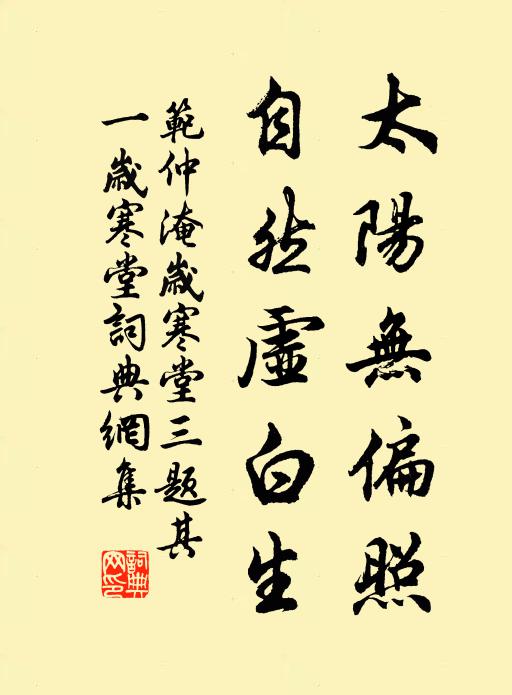 太陽無偏照
自然虛白生
範仲淹歲寒堂三題其
一歲寒堂詞典網集
詞典
网印